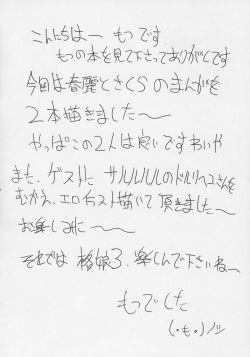 こんにちはー もっです
もっの本を見て下さってありがとです
今回は春麗とさくらのまんがを
2本描きました〜
やっぱこの2人は良いですわいや
また、ゲストに サルルルルのドルリヘコさんを
むかえ、エロゲスト描いて頂きました〜
お楽しみに〜〜
それでは 格娘3. 楽しんで下さいね〜
もっでした
(・も・)ノシ